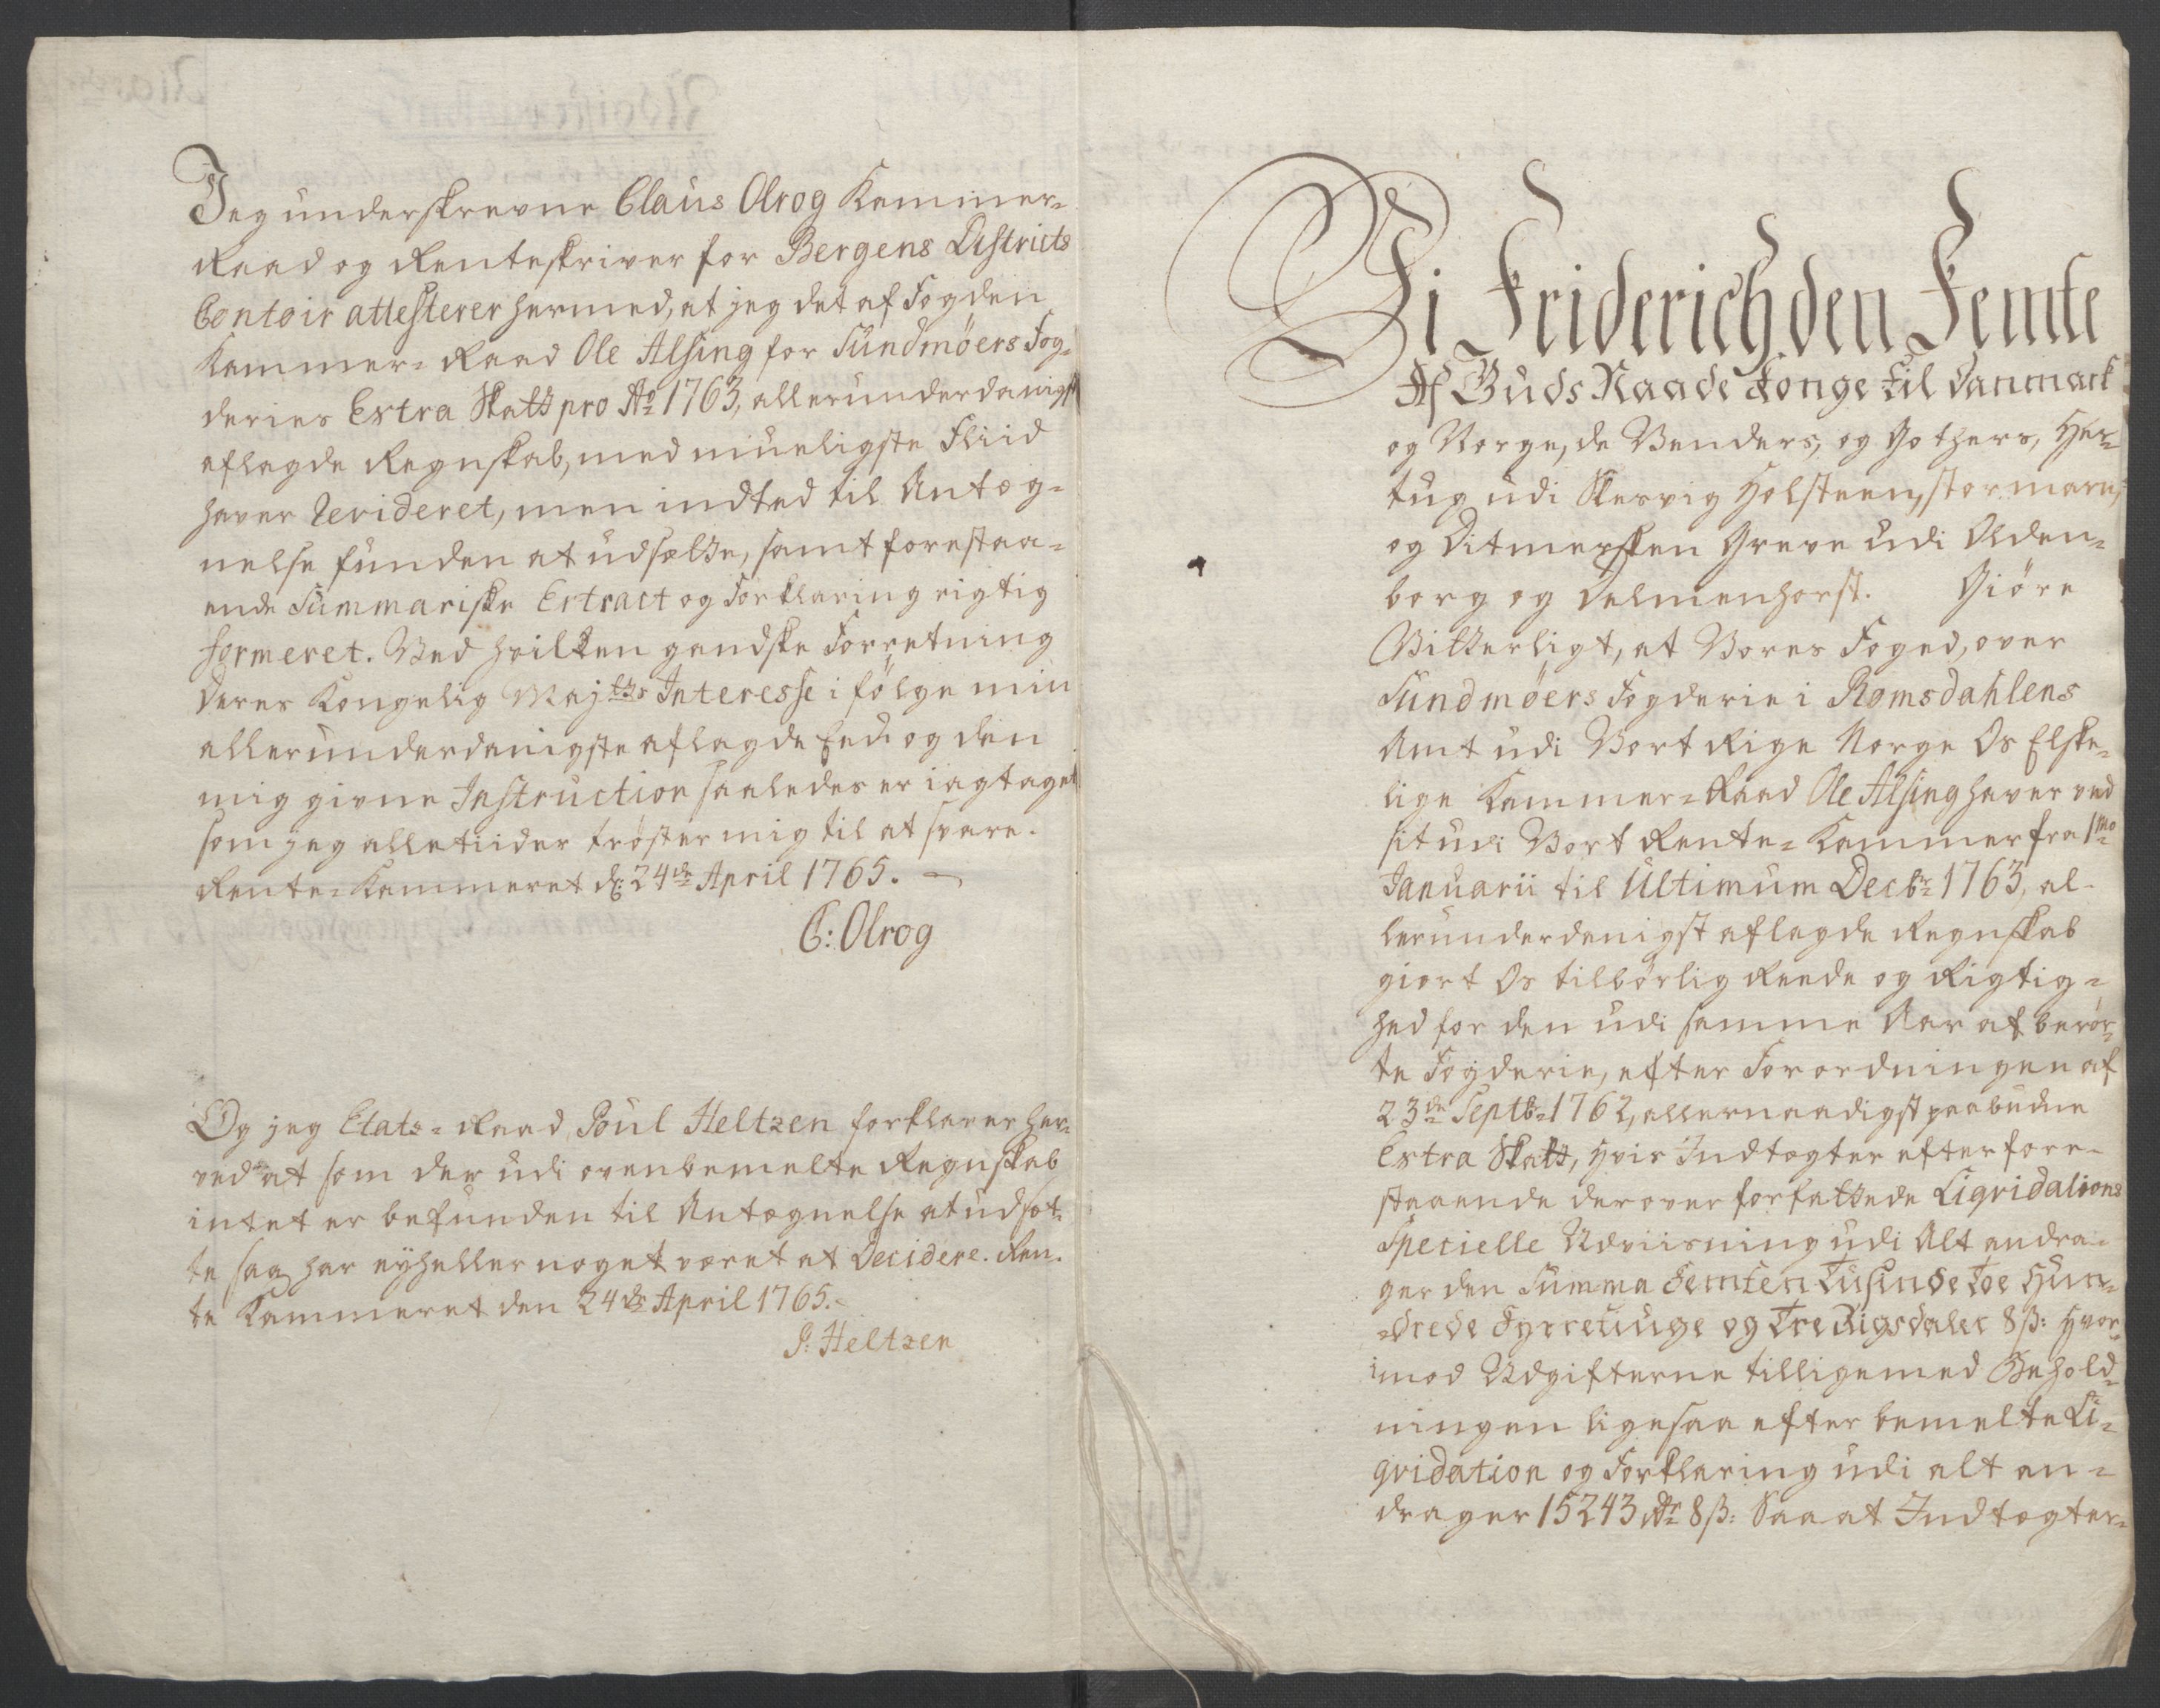 Jeg underskrevne Claus Olrog Kammer-
Raad og Renteskriver for Bergens Districts
Contoir attesterer hermed, at jeg det af Fogden
Kammer-Raad Ole Alsing for Sundmöers Fog-
deries Extra Skatt pro Ao 1763, allerunderdanigst
aflagde Regnskab, med mueligste Fliid
haver Revideret, men indted til Anteg-
nelse funden at udsætte, samt forestaa-
ende Summariske Extract og Forklaring rigtig
formeret. Ved hvilken gandske Forretning
Deres Kongelig Majts Interesse i fölge min
allerunderdanigste aflagde Eed og den
mig givne Instruction saaledes er iagtaget
som jeg alletiider tröster mig til at svare.
Rente-Kammeret d: 24de April 1765.
C: Olrog
Og jeg Etats-Raad Poul Heltzen forklarer her-
ved at som der udi ovenbemelte Regnskab
intet er befunden til Antegnelse at udsæt-
te saa har eyheller noget været at Decidere. Ren-
te Kammeret den 24de April 1765.
P: Heltzen
Vi Friderich den Femte
Af Guds Naade Konge til Danmark
og Norge, de Venders, og Gothers, Her-
tug udi Slesvig Holsteen, Stormarn,
og Ditmersken Greve udi Olden-
borg og Delmenhorst. Giöre
Vitterligt, at Vores Foged, over
Sundmöers Fogderie i Romsdahlens
Amt udi Vort Rige Norge Os Elske-
lige Kammer-Raad Ole Alsing haver ved
sit udi Vort Rente-Kammer fra 1mo
Januarii til Ultimum Decbr 1763, al-
lerunderdanigst aflagde Regnskab
giort Os tilbörlig Reede og Rigtig-
hed for den udi samme Aar af berör-
te Fogderie, efter Forordningen af
23de Septbr 1762, allernaadigst paabudne
Extra Skatt, hvis Indtægter efter fore-
staaende derover forfattede Liqvidations
Specielle Udviisning udi Alt andra-
ger den Summa Femten Tusinde Toe Hun-
drede Fyrretiuge og Tre Rigsdaler 8 ß: hvor-
imod Udgifterne tilligemed Behold-
ningen ligesaa efter bemelte Li-
qvidation og Forklaring udi alt an-
drager 15243 Rdr 8 ß: Saa at Indtægter-